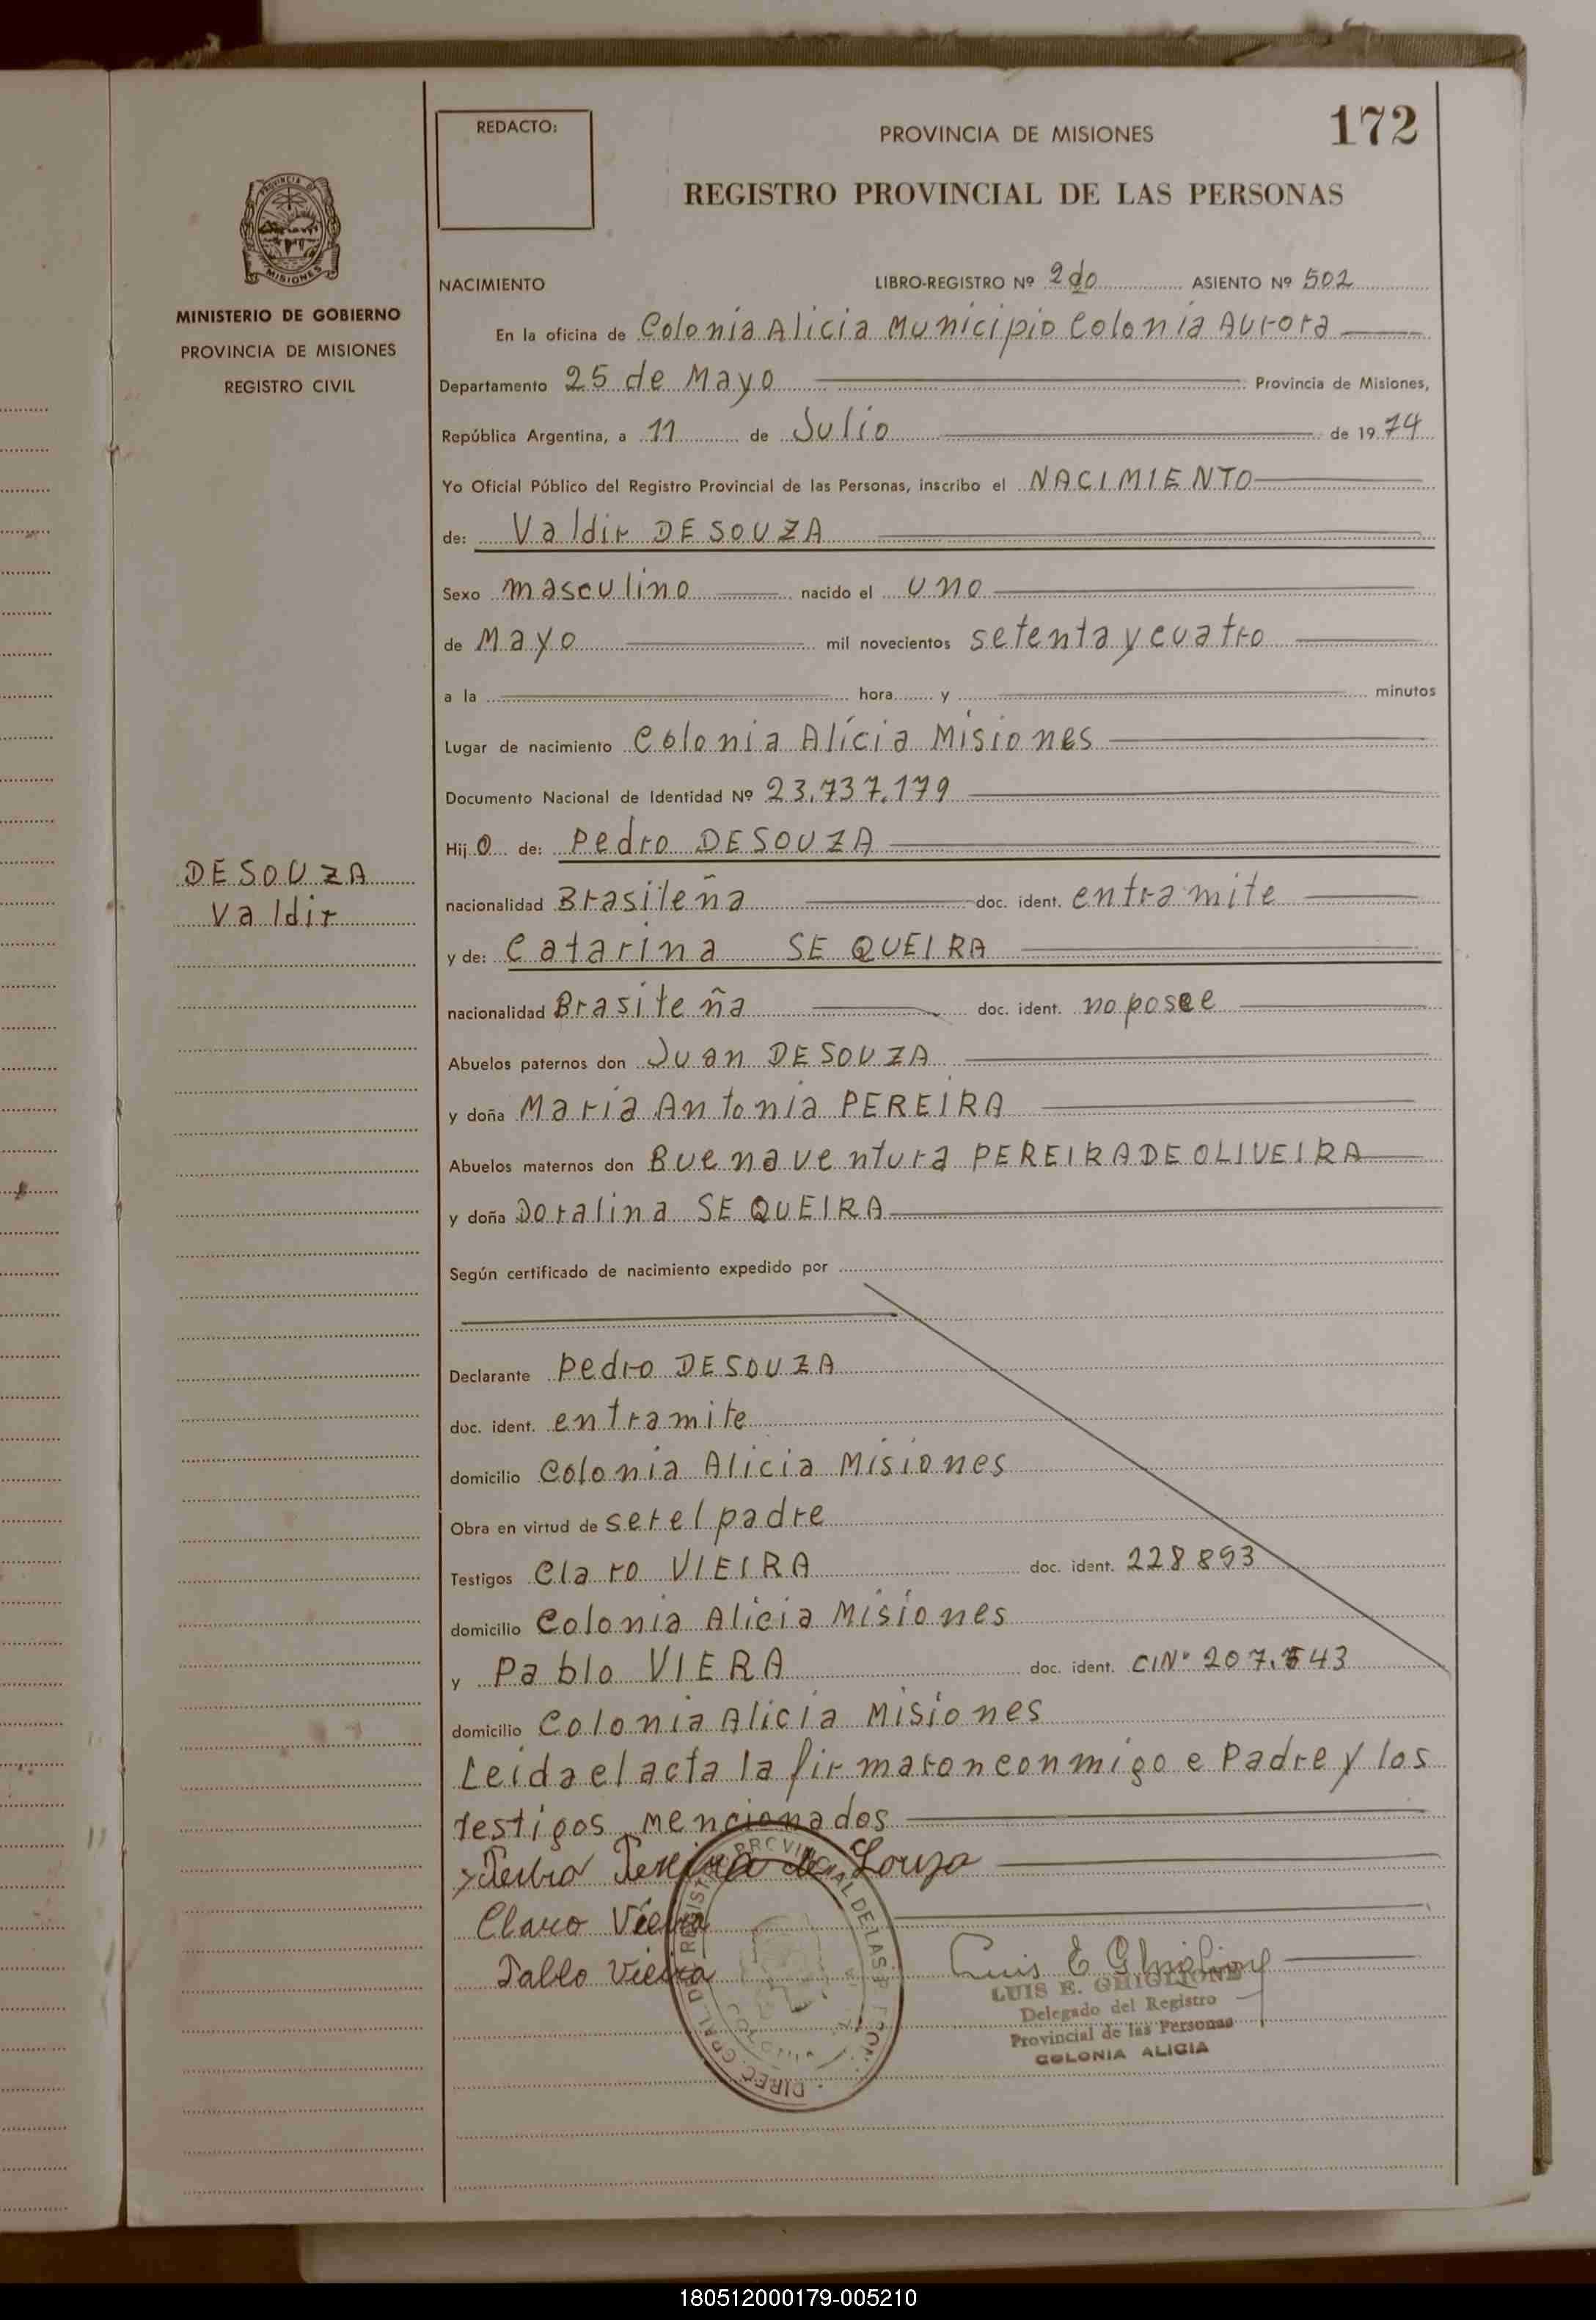 172
REDACTO:
PROVINCIA DE MISIONES
REGISTRO PROVINCIAL DE LAS PERSONAS
PROVINCIA DE
MISIONES
MINISTERIO DE GOBIERNO
PROVINCIA DE MISIONES
REGISTRO CIVIL
DESOUZA
Valdir
NACIMIENTO LIBRO-REGISTRO Nº 2do ASIENTO Nº 502
En la oficina de Colonia Alicia Municipio Colonia Aurora
Departamento 25 de Mayo Provincia de Misiones,
República Argentina, a 11 de Julio de 1974
Yo Oficial Público del Registro Provincial de las Personas, inscribo el NACIMIENTO
de: Valdir DESOUZA
Sexo masculino nacido el uno
de Mayo mil novecientos setenta y cuatro
a la hora y minutos
Lugar de nacimiento Colonia Alicia Misiones
Documento Nacional de Identidad Nº 23.737.179
Hijo de: Pedro DESOUZA
nacionalidad Brasileña doc. ident. entramite
y de: Catarina SEQUEIRA
nacionalidad Brasileña doc. ident. no posee
Abuelos paternos don Juan DESOUZA
y doña Maria Antonia PEREIRA
Abuelos maternos don Buenaventura PEREIRA DE OLIVEIRA
y doña Doralina SEQUEIRA
Según certificado de nacimiento expedido por
Declarante Pedro DESOUZA
doc. ident. entramite
domicilio Colonia Alicia Misiones
Obra en virtud de ser el padre
Testigos Claro VIEIRA doc. ident. 228893
domicilio Colonia Alicia Misiones
y Pablo VIERA doc. ident. CINº 207.543
domicilio Colonia Alicia Misiones
Leida el acta la firmaron conmigo e Padre y los
testigos mencionados
Pedro Pereira de Souza
Claro Vieira
Pablo Vieira
Luis E Ghiglione
LUIS E. GHIGLIONE
Delegado del Registro
Provincial de las Personas
COLONIA ALICIA
180512000179-005210